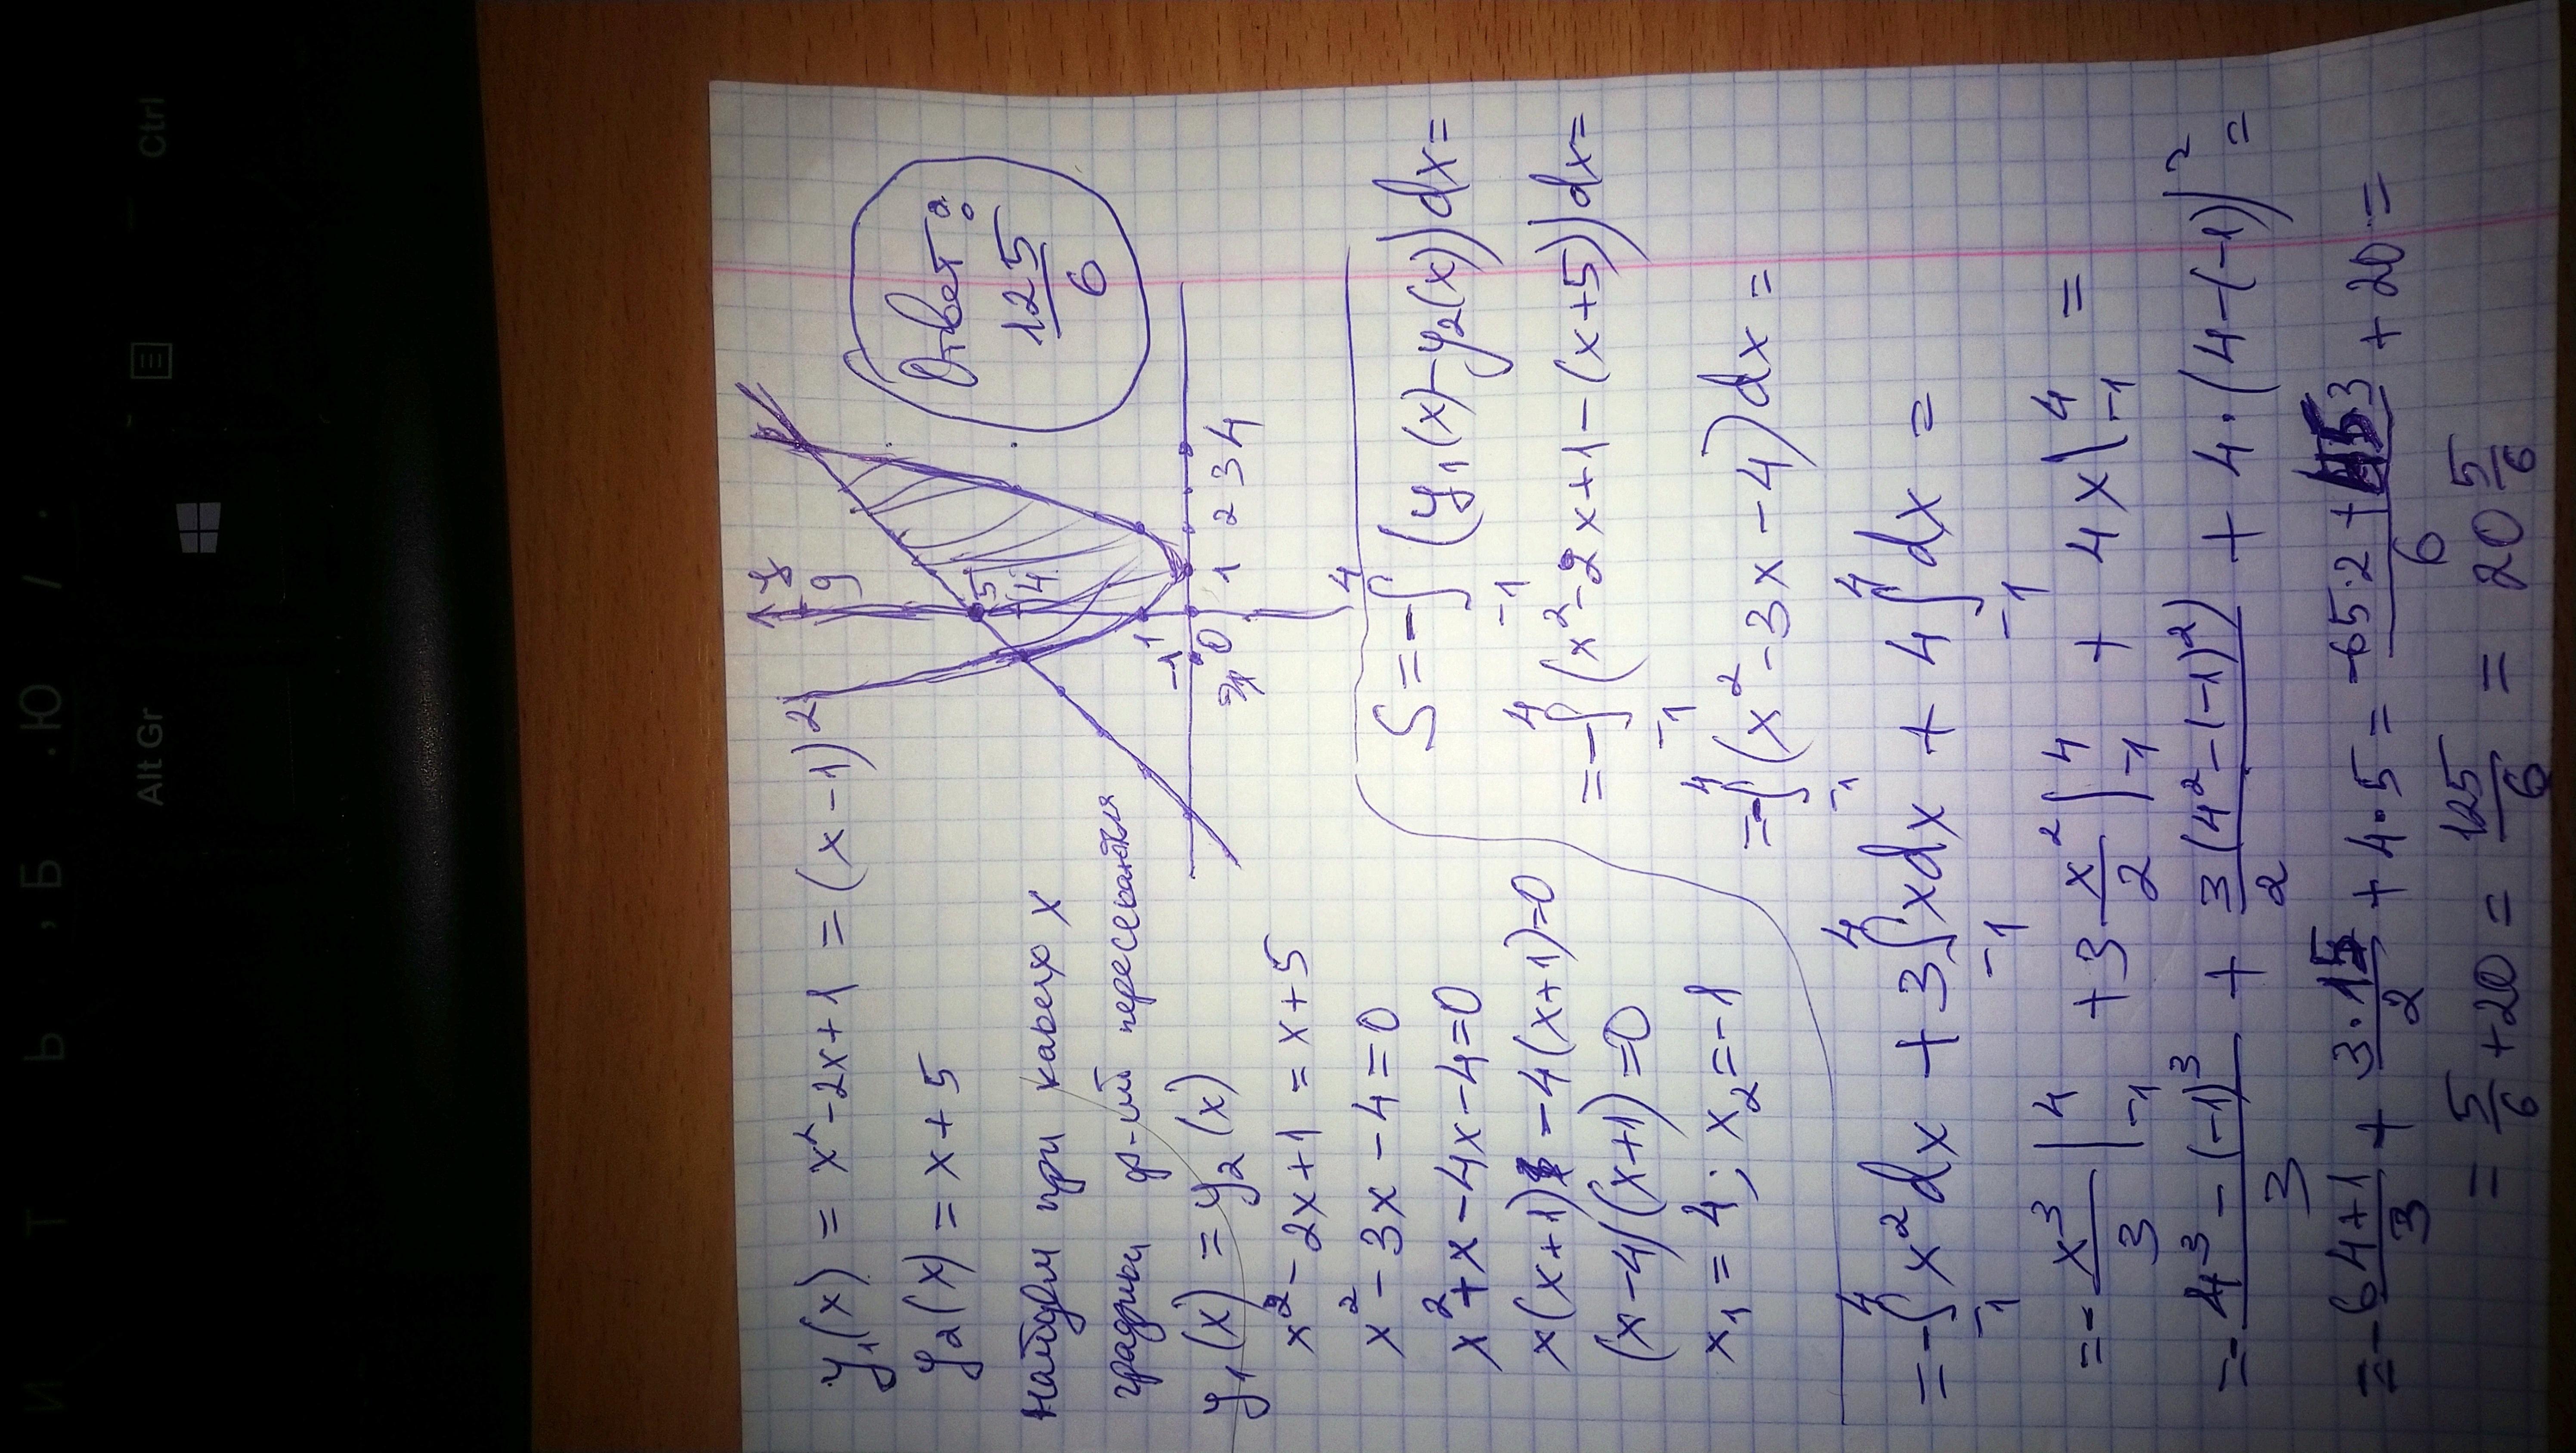 y₁(x) = x² - 2x + 1 = (x - 1)²
y₂(x) = x + 5
Найдём при каких x
графики ф-ий пересекаются
y₁(x) = y₂(x)
x² - 2x + 1 = x + 5
x² - 3x - 4 = 0
x² + x - 4x - 4 = 0
x(x+1) - 4(x+1) = 0
(x-4)(x+1) = 0
x₁ = 4; x₂ = -1
9
5
4
1
-1 0 1 2 3 4
Ответ:
125/6
S = -∫₋₁⁴ (y₁(x) - y₂(x))dx =
= -∫₋₁⁴ (x² - 2x + 1 - (x+5))dx =
= -∫₋₁⁴ (x² - 3x - 4)dx =
= -∫₋₁⁴ x²dx + 3∫₋₁⁴ xdx + 4∫₋₁⁴ dx =
= - x³/3 |₋₁⁴ + 3 x²/2 |₋₁⁴ + 4x|₋₁⁴ =
= - (4³ - (-1)³)/3 + 3(4² - (-1)²)/2 + 4·(4-(-1))² =
= - (64+1)/3 + 3·15/2 + 4·5 = (-65·2 + 45·3)/6 + 20 =
= 5/6 + 20 = 125/6 = 20 5/6
И Т Ь , Б . Ю / .
Alt Gr
Ctrl